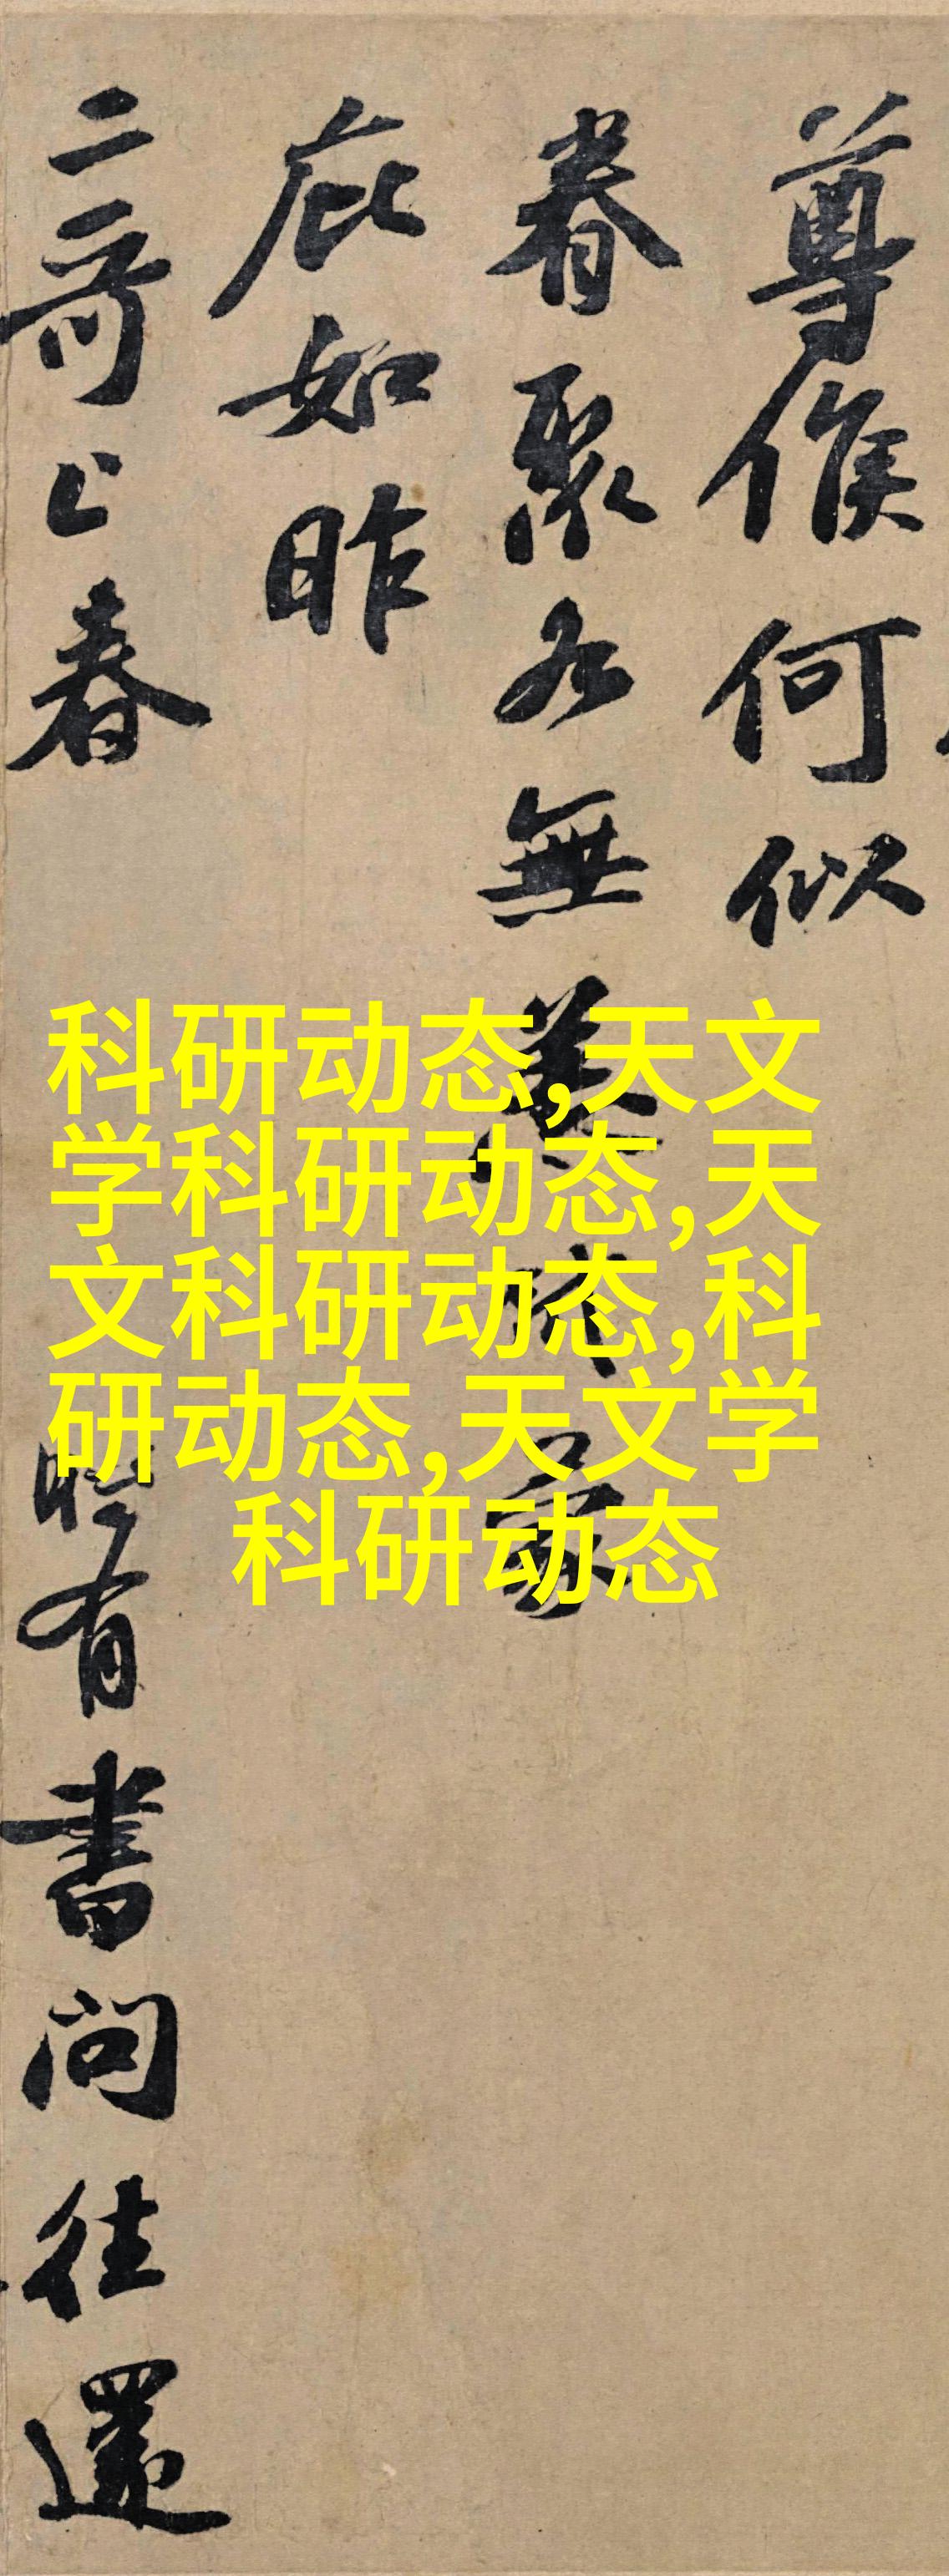 尊候何似
眷聚各無恙 昨蒙
庇如昨
二哥上春 時有書問往還
科研动态,天文
学科研动态,天
文科研动态,科
研动态,天文学
科研动态